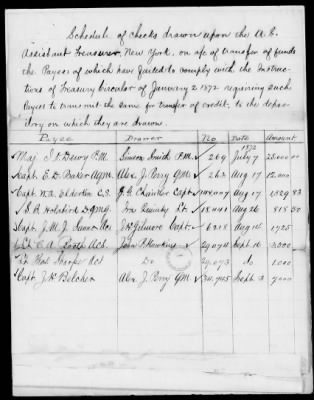 Schedule of checks drawn upon the U.S.
Assistant Treasurer, New York, on a/c of transfer of funds
the Payees of which have failed to comply with the Instruc-
tions of Treasury Circular of January 2 1872 requiring such
Payees to transmit the same for transfer of credit, to the depos-
itory on which they are drawn.
Payee Drawer No Date Amount
1872
Maj. Dewey P.M. Simeon Smith P.M. 269 July 7 25.000 00
Capt. E. D. Baker Aqm. Alex. J. Perry QM 262 Aug 17 12.000
Capt. W.A. Elderkin C.S. Capt Aug 17 1829 83
S. B. Holabird Dqmg. Lt. 18.441 Aug 26 818 50
Capt. J. M. J. J. H. Gilmore Capt. 6218 Aug 14 1725
Lt. C. A. Acs. John P. Hawkins 29.078 Sept. 10 3.000
Lt. Thos. Sharpe Acs Do 29.073 do 1.000
Capt. J. H. Belcher Alex. J. Perry QM 34.745 Sept. 3 7000